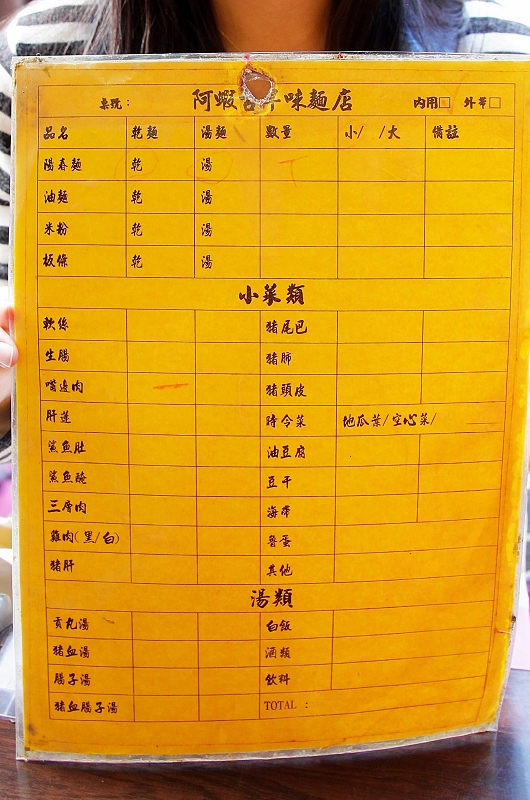 桌號： 阿蝦古早味麵店 內用 外帶
品名 乾麵 湯麵 數量 小/ /大 備註
陽春麵 乾 湯
油麵 乾 湯
米粉 乾 湯
板條 乾 湯
小菜類
軟絲 豬尾巴
生腸 豬肺
嘴邊肉 豬頭皮
肝蓮 時令菜 地瓜葉/空心菜/
鯊魚肚 油豆腐
鯊魚醃 豆干
三層肉 海帶
雞肉(黑/白) 魯蛋
豬肝 其他
湯類
貢丸湯 白飯
豬血湯 酒類
腸子湯 飲料
豬血腸子湯 TOTAL：